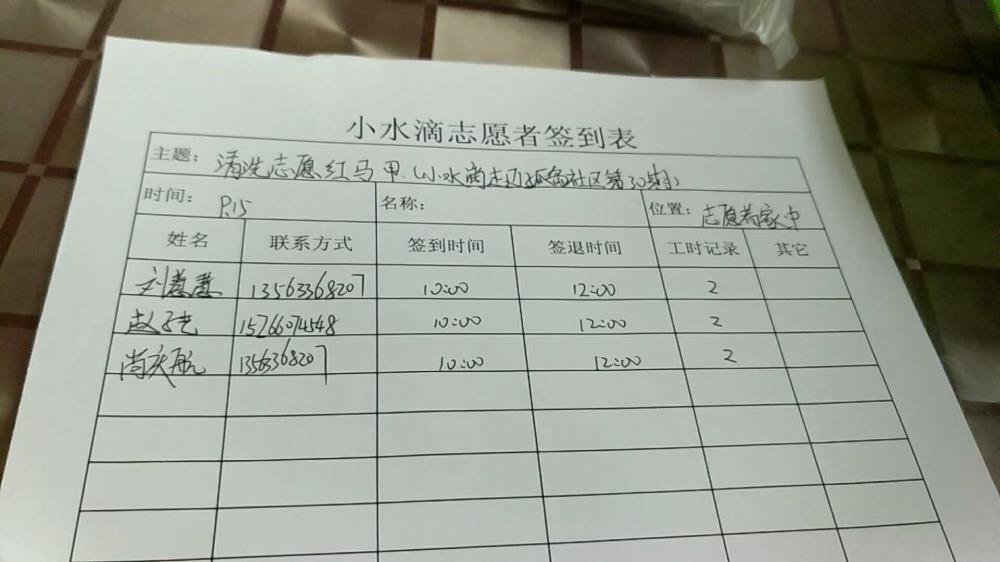 小水滴志愿者签到表
主题: 清洗志愿红马甲(小水滴走进孤岛社区第30期)
时间: 8.15 名称: 位置: 志愿者家中
姓名 联系方式 签到时间 签退时间 工时记录 其它
刘慧慧 13563368207 10:00 12:00 2
15266074548 10:00 12:00 2
尚庆航 13563368207 10:00 12:00 2